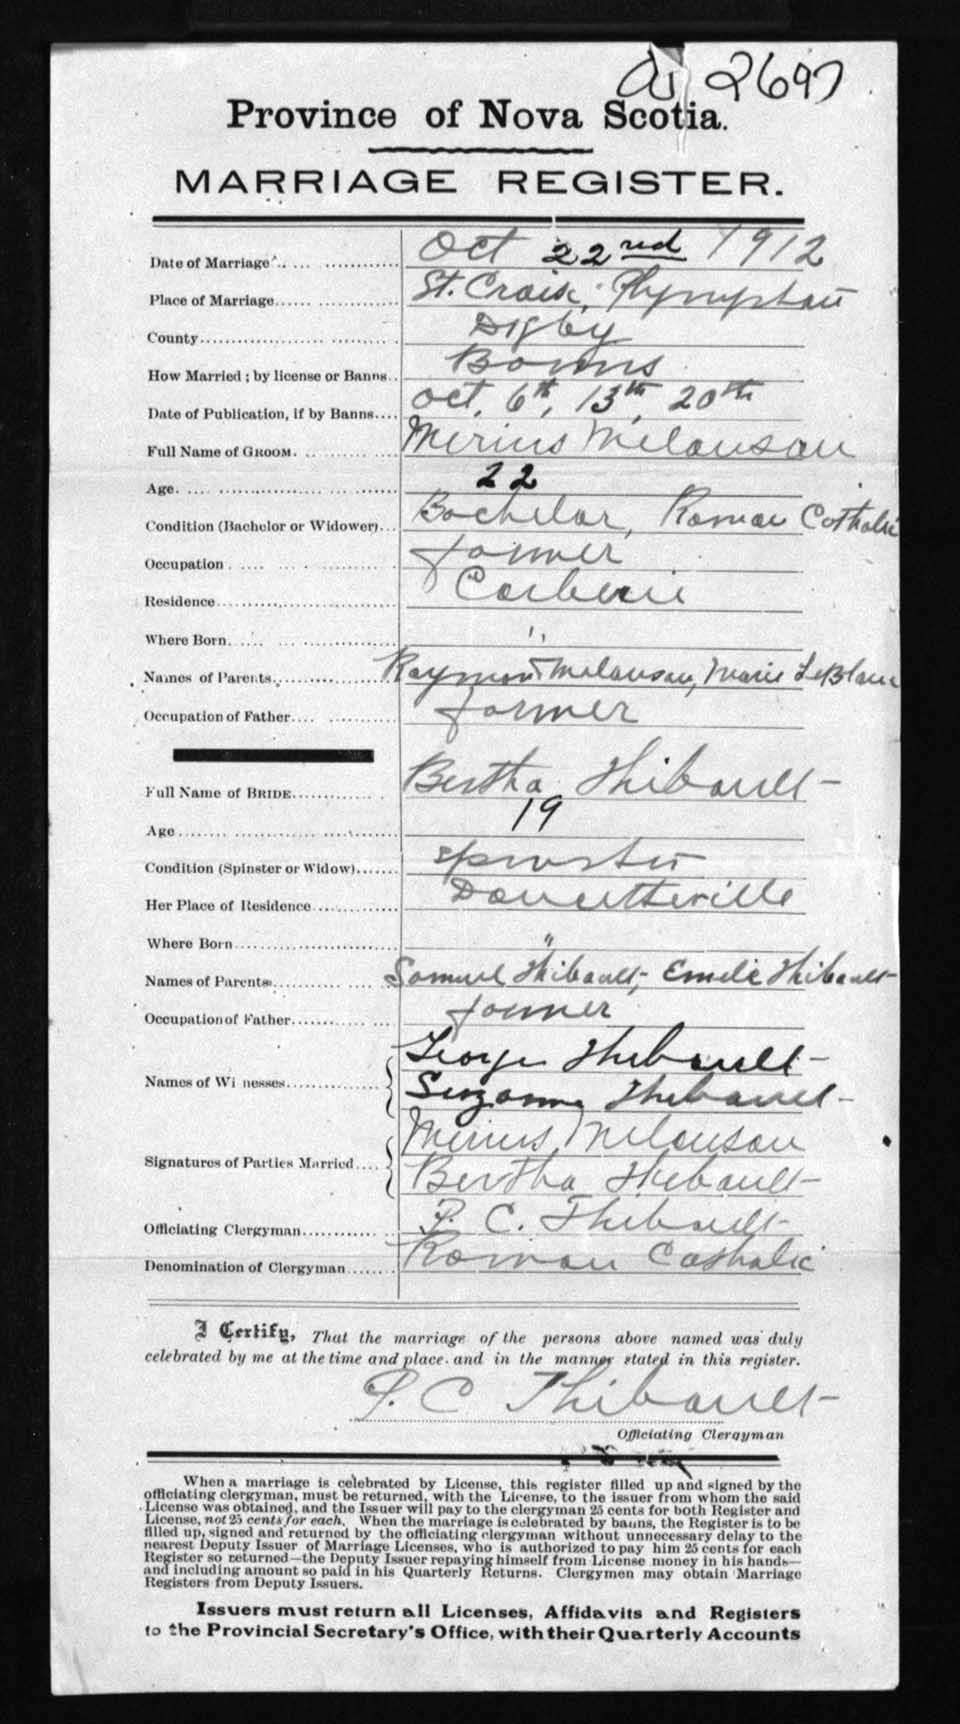 2697
Province of Nova Scotia.
MARRIAGE REGISTER.
Date of Marriage Oct 22nd 1912
Place of Marriage St. Croix, Plympton
County Digby
How Married ; by license or Banns Banns
Date of Publication, if by Banns Oct, 6th, 13th, 20th
Full Name of GROOM. Merius Melanson
Age 22
Condition (Bachelor or Widower) Bachelor, Roman Catholic
Occupation farmer
Residence Corberie
Where Born "
Names of Parents Raymont Melanson, Marie LeBlanc
Occupation of Father farmer
Full Name of BRIDE Bertha Thibault
Age 19
Condition (Spinster or Widow) Spinster
Her Place of Residence Doucetteville
Where Born "
Names of Parents Samuel Thibault, Emelie Thibault
Occupation of Father farmer
Names of Witnesses George Thibault
Suzanne Thibault
Signatures of Parties Married Merius Melanson
Bertha Thibault
Officiating Clergyman P. C. Thibault
Denomination of Clergyman Roman Catholic
I Certify, That the marriage of the persons above named was duly
celebrated by me at the time and place and in the manner stated in this register.
P. C Thibault
Officiating Clergyman
When a marriage is celebrated by License, this register filled up and signed by the
officiating clergyman, must be returned, with the License, to the issuer from whom the said
License was obtained, and the Issuer will pay to the clergyman 25 cents for both Register and
License, not 25 cents for each. When the marriage is celebrated by banns, the Register is to be
filled up, signed and returned by the officiating clergyman without unnecessary delay to the
nearest Deputy Issuer of Marriage Licenses, who is authorized to pay him 25 cents for each
Register so returned—the Deputy Issuer repaying himself from License money in his hands—
and including amount so paid in his Quarterly Returns. Clergymen may obtain Marriage
Registers from Deputy Issuers.
Issuers must return all Licenses, Affidavits and Registers
to the Provincial Secretary's Office, with their Quarterly Accounts